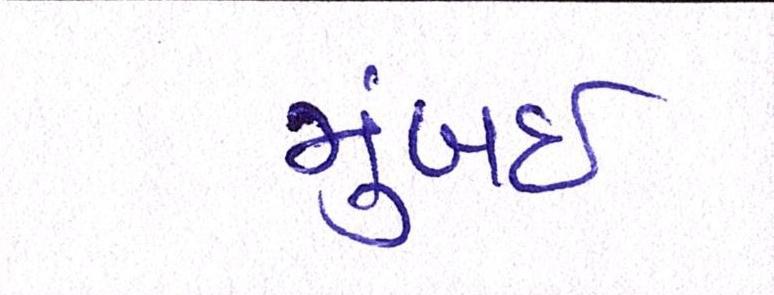 મુંબઈ